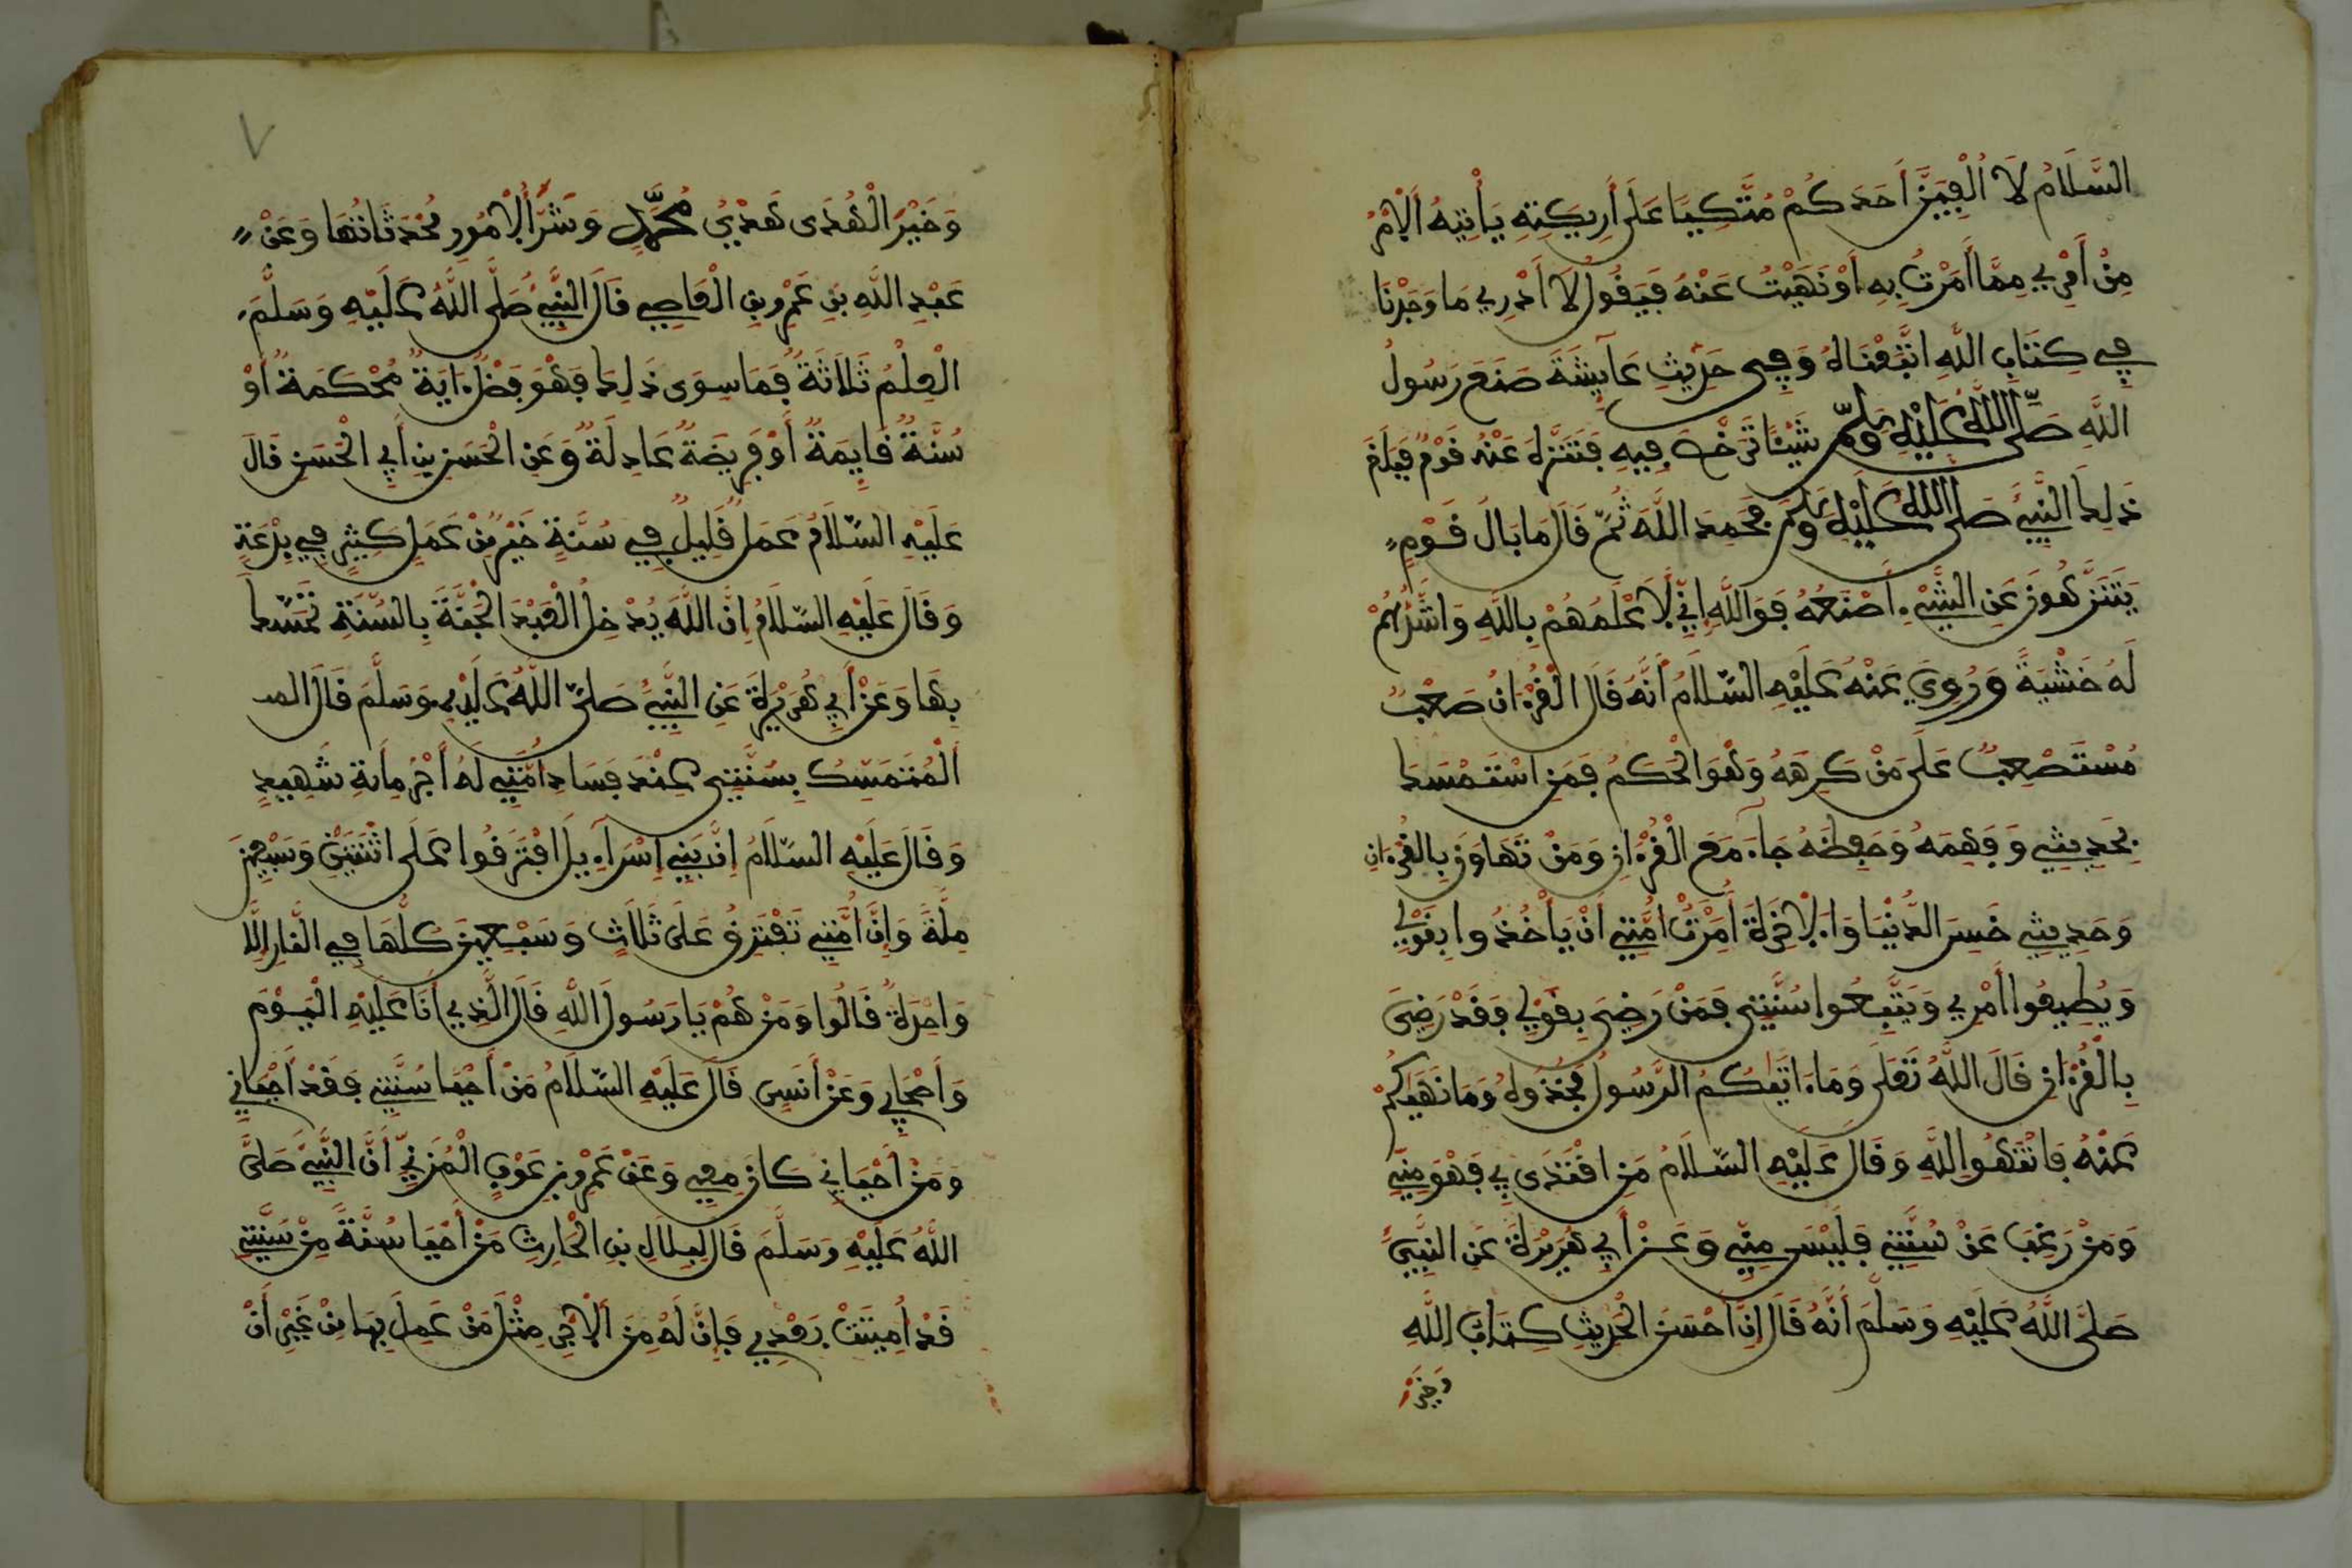 السَّلَامُ لَا أُلْفِيَنَّ أَحَدَكُمْ مُتَّكِيًا عَلَى أَرِيكَتِهِ يَأْتِيهُ الَامْرُ
مِنْ أَمْرِي مِمَّا أَمَرْتُ بِهِ أَوْ نَهَيْتُ عَنْهُ فَيَقُولُ لَا أَدْرِي مَا وَجَدْنَا
فِي كِتَابِ اللَّهِ اتَّبَعْنَاهُ وَفِي حَدِيثِ عَآيِشَةَ صَنَعَ رَسُولُ
اللَّهِ صَلَّى اللَّهُ عَلَيْهِ وَسَلَّمَ شَيْئًا تَرَخَّصَ فِيهِ فَتَنَزَّهَ عَنْهُ قَوْمٌ فَبَلَغَ
ذَلِكَ النَّبِيَّ صَلَّى اللَّهُ عَلَيْهِ وَسَلَّمَ فَحَمِدَ اللَّهَ ثُمَّ قَالَ مَا بَالُ قَوْمٍ
يَتَنَزَّهُونَ عَنِ الشَّيْءِ أَصْنَعُهُ فَوَاللَّهِ إِنِّي لَأَعْلَمُهُمْ بِاللَّهِ وَأَشَدُّهُمْ
لَهُ خَشْيَةً وَرُوِيَ عَنْهُ عَلَيْهِ السَّلَامُ أَنَّهُ قَالَ الْقُرْءَانُ صَعْبٌ
مُسْتَصْعِبٌ عَلَى مَنْ كَرِهَهُ وَهُوَ الْحَكَمُ فَمَنِ اسْتَمْسَكَ
بِحَدِيثِي وَفَهِمَهُ وَحَفِظَهُ جَاءَ مَعَ الْقُرْءَانِ وَمَنْ تَهَاوَنَ بِالْقُرْءَانِ
وَحَدِيثِي خَسِرَ الدُّنْيَا وَالَاخِرَةَ أُمِرَتْ أُمَّتِي أَنْ يَأْخُذُوا بِقَوْلِي
وَيُطِيعُوا أَمْرِي وَيَتَّبِعُوا سُنَّتِي فَمَنْ رَضِيَ بِقَوْلِي فَقَدْ رَضِيَ
بِالْقُرْءَانِ قَالَ اللَّهُ تَعَلَى وَمَا ءَاتَيكُمُ الرَّسُولُ فَخُذُوهُ وَمَا نَهَيكُمْ
عَنْهُ فَانْتَهُوا اللَّهِ وَقَالَ عَلَيْهِ السَّلَامُ مَنِ اقْتَدَى بِي فَهْوَ مِنِّي
وَمَنْ رَغِبَ عَنْ سُنَّتِي فَلَيْسَ مِنِّي وَعَنْ أَبِي هُرَيْرَةَ عَنِ النَّبِيِّ
صَلَّى اللَّهُ عَلَيْهِ وَسَلَّمَ أَنَّهُ قَالَ إِنَّ أَحْسَنَ الْحَدِيثِ كِتَابُ اللَّهِ
وَخَيْرُ
٧
وَخَيْرَ الْهُدَى هَدْيُ مُحَمَّدٍ وَشَرَّ الُامُورِ مُحْدَثَاتُهَا وَعَنْ
عَبْدِ اللَّهِ بْنِ عَمْرِو بْنِ الْعَاصِي قَالَ النَّبِيُّ صَلَّى اللَّهُ عَلَيْهِ وَسَلَّمَ
الْعِلْمُ ثَلَاثَةٌ فَمَا سِوَى ذَلِكَ فَهْوَ فَضْلٌ ءَايَةٌ مُحْكَمَةٌ أَوْ
سُنَّةٌ قَايِمَةٌ أَوْ فَرِيضَةٌ عَادِلَةٌ وَعَنِ الْحَسَنِ بْنِ أَبِي الْحَسَنِ قَالَ
عَلَيْهِ السَّلَامُ عَمَلٌ قَلِيلٌ فِي سُنَّةٍ خَيْرٌ مِنْ عَمَلٍ كَثِيرٍ فِي بِدْعَةٍ
وَقَالَ عَلَيْهِ السَّلَامُ إِنَّ اللَّهَ يُدْخِلُ الْعَبْدَ الْجَنَّةَ بِالسُّنَّةِ تَمَسَّكَ
بِهَا وَعَنْ أَبِي هُرَيْرَةَ عَنِ النَّبِيِّ صَلَّى اللَّهُ عَلَيْهِ وَسَلَّمَ قَالَ
الْمُتَمَسِّكُ بِسُنَّتِي عِنْدَ فَسَادِ أُمَّتِي لَهُ أَجْرُ مِائَةِ شَهِيدٍ
وَقَالَ عَلَيْهِ السَّلَامُ إِنَّ بَنِي إِسْرَآءِيلَ افْتَرَقُوا عَلَى اثْنَتَيْنِ وَسَبْعِينَ
مِلَّةً وَإِنَّ أُمَّتِي تَفْتَرِقُ عَلَى ثَلَاثٍ وَسَبْعِينَ كُلُّهَا فِي النَّارِ إِلَّا
وَاحِدَةً قَالُوا وَمَنْ هُمْ يَا رَسُولَ اللَّهِ قَالَ الَّذِي أَنَا عَلَيْهِ الْيَوْمَ
وَأَصْحَابِي وَعَنْ أَنَسٍ قَالَ عَلَيْهِ السَّلَامُ مَنْ أَحْيَا سُنَّتِي فَقَدْ أَحْيَانِي
وَمَنْ أَحْيَانِي كَانَ مَعِي وَعَنْ عَمْرِو بْنِ عَوْفٍ الْمُزَنِيِّ أَنَّ النَّبِيَّ صَلَّى
اللَّهُ عَلَيْهِ وَسَلَّمَ قَالَ لِبِلَالِ بْنِ الْحَارِثِ مَنْ أَحْيَا سُنَّةً مِنْ سُنَّتِي
قَدْ أُمِيتَتْ بَعْدِي فَإِنَّ لَهُ مِنَ الَاجْرِ مِثْلَ مَنْ عَمِلَ بِهَا مِنْ غَيْرِ أَنْ